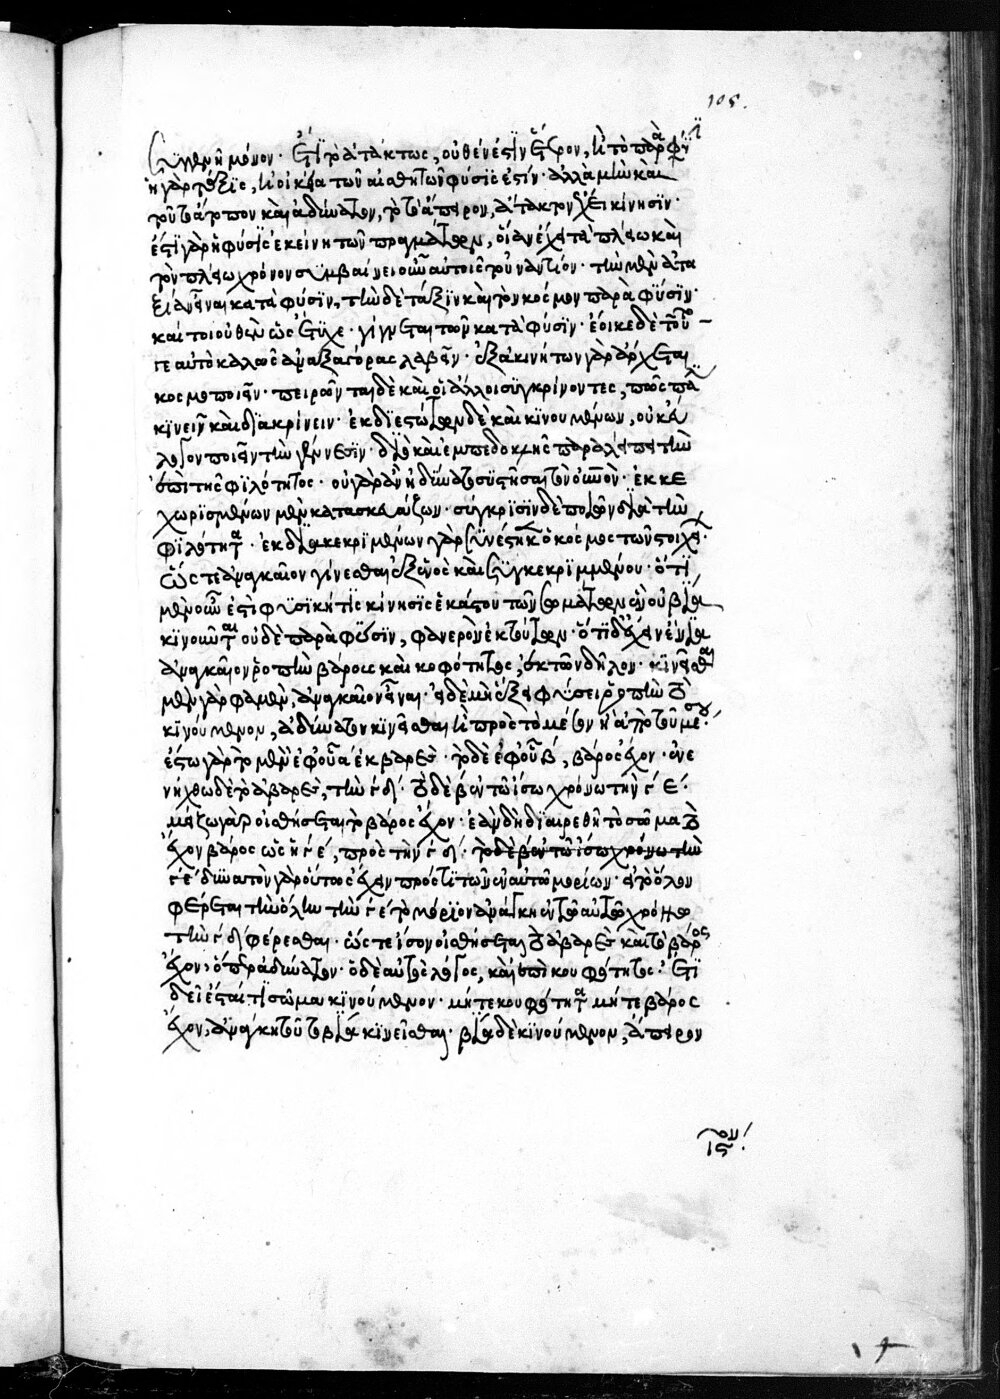 105.
ἐγγενῆ μόνον· ἔτι τὸ ἀτάκτως, οὐθέν ἐστιν ἕτερον, ἢ τὸ παρὰ φύσι
ἡ γὰρ τάξις, ἡ οἰκεία τῶν αἰσθητῶν φύσις ἐστίν· ἀλλὰ μὴν καὶ
τοῦτο ἄτοπον καὶ ἀδύνατον, τὸ ἄπειρον, ἄτακτον ἔχει κίνησιν·
ἔστι γὰρ ἡ φύσις ἐκείνη τῶν πραγμάτων, οἵαν ἔχει τὰ πλείω καὶ
τὸν πλείω χρόνον συμβαίνει οὖν αὐτοῖς τοὐναντίον· τὴν μὲν ἀτα
ξίαν εἶναι κατὰ φύσιν, τὴν δὲ τάξιν καὶ τὸν κόσμον παρὰ φύσιν·
καίτοι οὐθὲν ὡς ἔτυχε· γίγνεται τῶν κατὰ φύσιν· ἔοικε δὲ τοῦτο
γε αὐτὸ καλῶς ἀναξαγόρας λαβεῖν· ἐξ ἀκινήτων γὰρ ἄρχεται
κοσμοποιεῖν· πειρῶνται δὲ καὶ οἱ ἄλλοι συγκρίνοντες, πως πάλι
κινεῖν καὶ διακρίνειν· ἐκ διεστώτων δὲ καὶ κινουμένων, οὐκ εὔ
λογον ποιεῖν τὴν γένεσιν· διὸ καὶ ἐμπεδοκλῆς παραλείπει τὴν
ἐπὶ τῆς φιλότητος· οὐ γὰρ ἂν ἠδύνατο συστῆσαι τὸν οὐρανὸν· ἐκ κε
χωρισμένων μὲν κατασκευάζων· σύγκρισιν δὲ ποιῶν διὰ τὴν
φιλότητα· ἐκ διακεκριμένων γὰρ συνέστηκε ὁ κόσμος τῶν στοιχεί·
ὥστε ἀναγκαῖον γίνεσθαι ἐξ ἑνὸς καὶ συγκεκριμμένου· ὅτι
μὲν οὖν ἐστὶ φυσική τις κίνησις ἑκάστου τῶν σωμάτων ἣν οὐ βίᾳ
κινοῦνται οὐδὲ παρὰ φύσιν, φανερὸν ἐκ τούτων· ὅτι δ' ἔχειν ἔνια
ἀναγκαῖον ῥοπὴν βάρους καὶ κουφότητος, ἐκ τῶνδε δῆλον· κινεῖσθαι
μὲν γὰρ φαμὲν, ἀναγκαῖον εἶναι· εἰ δὲ μὴ ἕξει φύσει ῥοπὴν τὸ
κινούμενον, ἀδύνατον κινεῖσθαι ἢ πρὸς τὸ μέσον ἢ ἀπὸ τοῦ μέσου·
ἔστω γὰρ τὸ μὲν ἐφ' οὗ α ἐκ βαρὲς· τὸ δὲ ἐφ' οὗ β, βάρος ἔχον· ἐνε
νήχθω δὲ τὸ ἀβαρὲς, τὴν γδ· τὸ δὲ β ἐν τῷ ἴσῳ χρόνῳ τὴν γε·
μείζω γὰρ οἰσθήσεται τὸ βάρος ἔχον· ἐὰν δὴ διαιρεθῇ τὸ σῶμα τὸ
ἔχον βάρος ὡς ἡ γε, πρὸς τὴν γδ· τὸ δὲ β ἐν τῷ ἴσῳ χρόνῳ τὴν
γε δυνατὸν γὰρ οὕτως ἔχειν πρός τι τῶν ἐν αὐτῷ μορίων· εἰ τὸ ὅλον
φέρεται τὴν ὅλην τὴν γε τὸ μόριον ἀνάγκη ἐν τῷ αὐτῷ χρόνῳ
τὴν γδ φέρεσθαι· ὥστε ἴσον οἰσθήσεται τὸ ἀβαρὲς καὶ τὸ βάρος
ἔχον· ὅπερ ἀδύνατον· ὁ δὲ αὐτὸς λόγος, καὶ ἐπὶ κουφότητος· ἔτι
δ' εἰ ἔσται τι σῶμα κινούμενον· μήτε κουφότητα μήτε βάρος
ἔχον, ἀνάγκη τοῦτο βίᾳ κινεῖσθαι· βίᾳ δὲ κινούμενον, ἄπειρον